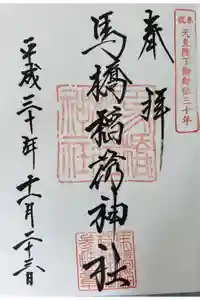 奉祝
天皇陛下御即位三十年
奉拝
馬橋稲荷神社
平成三十年十一月二十三日